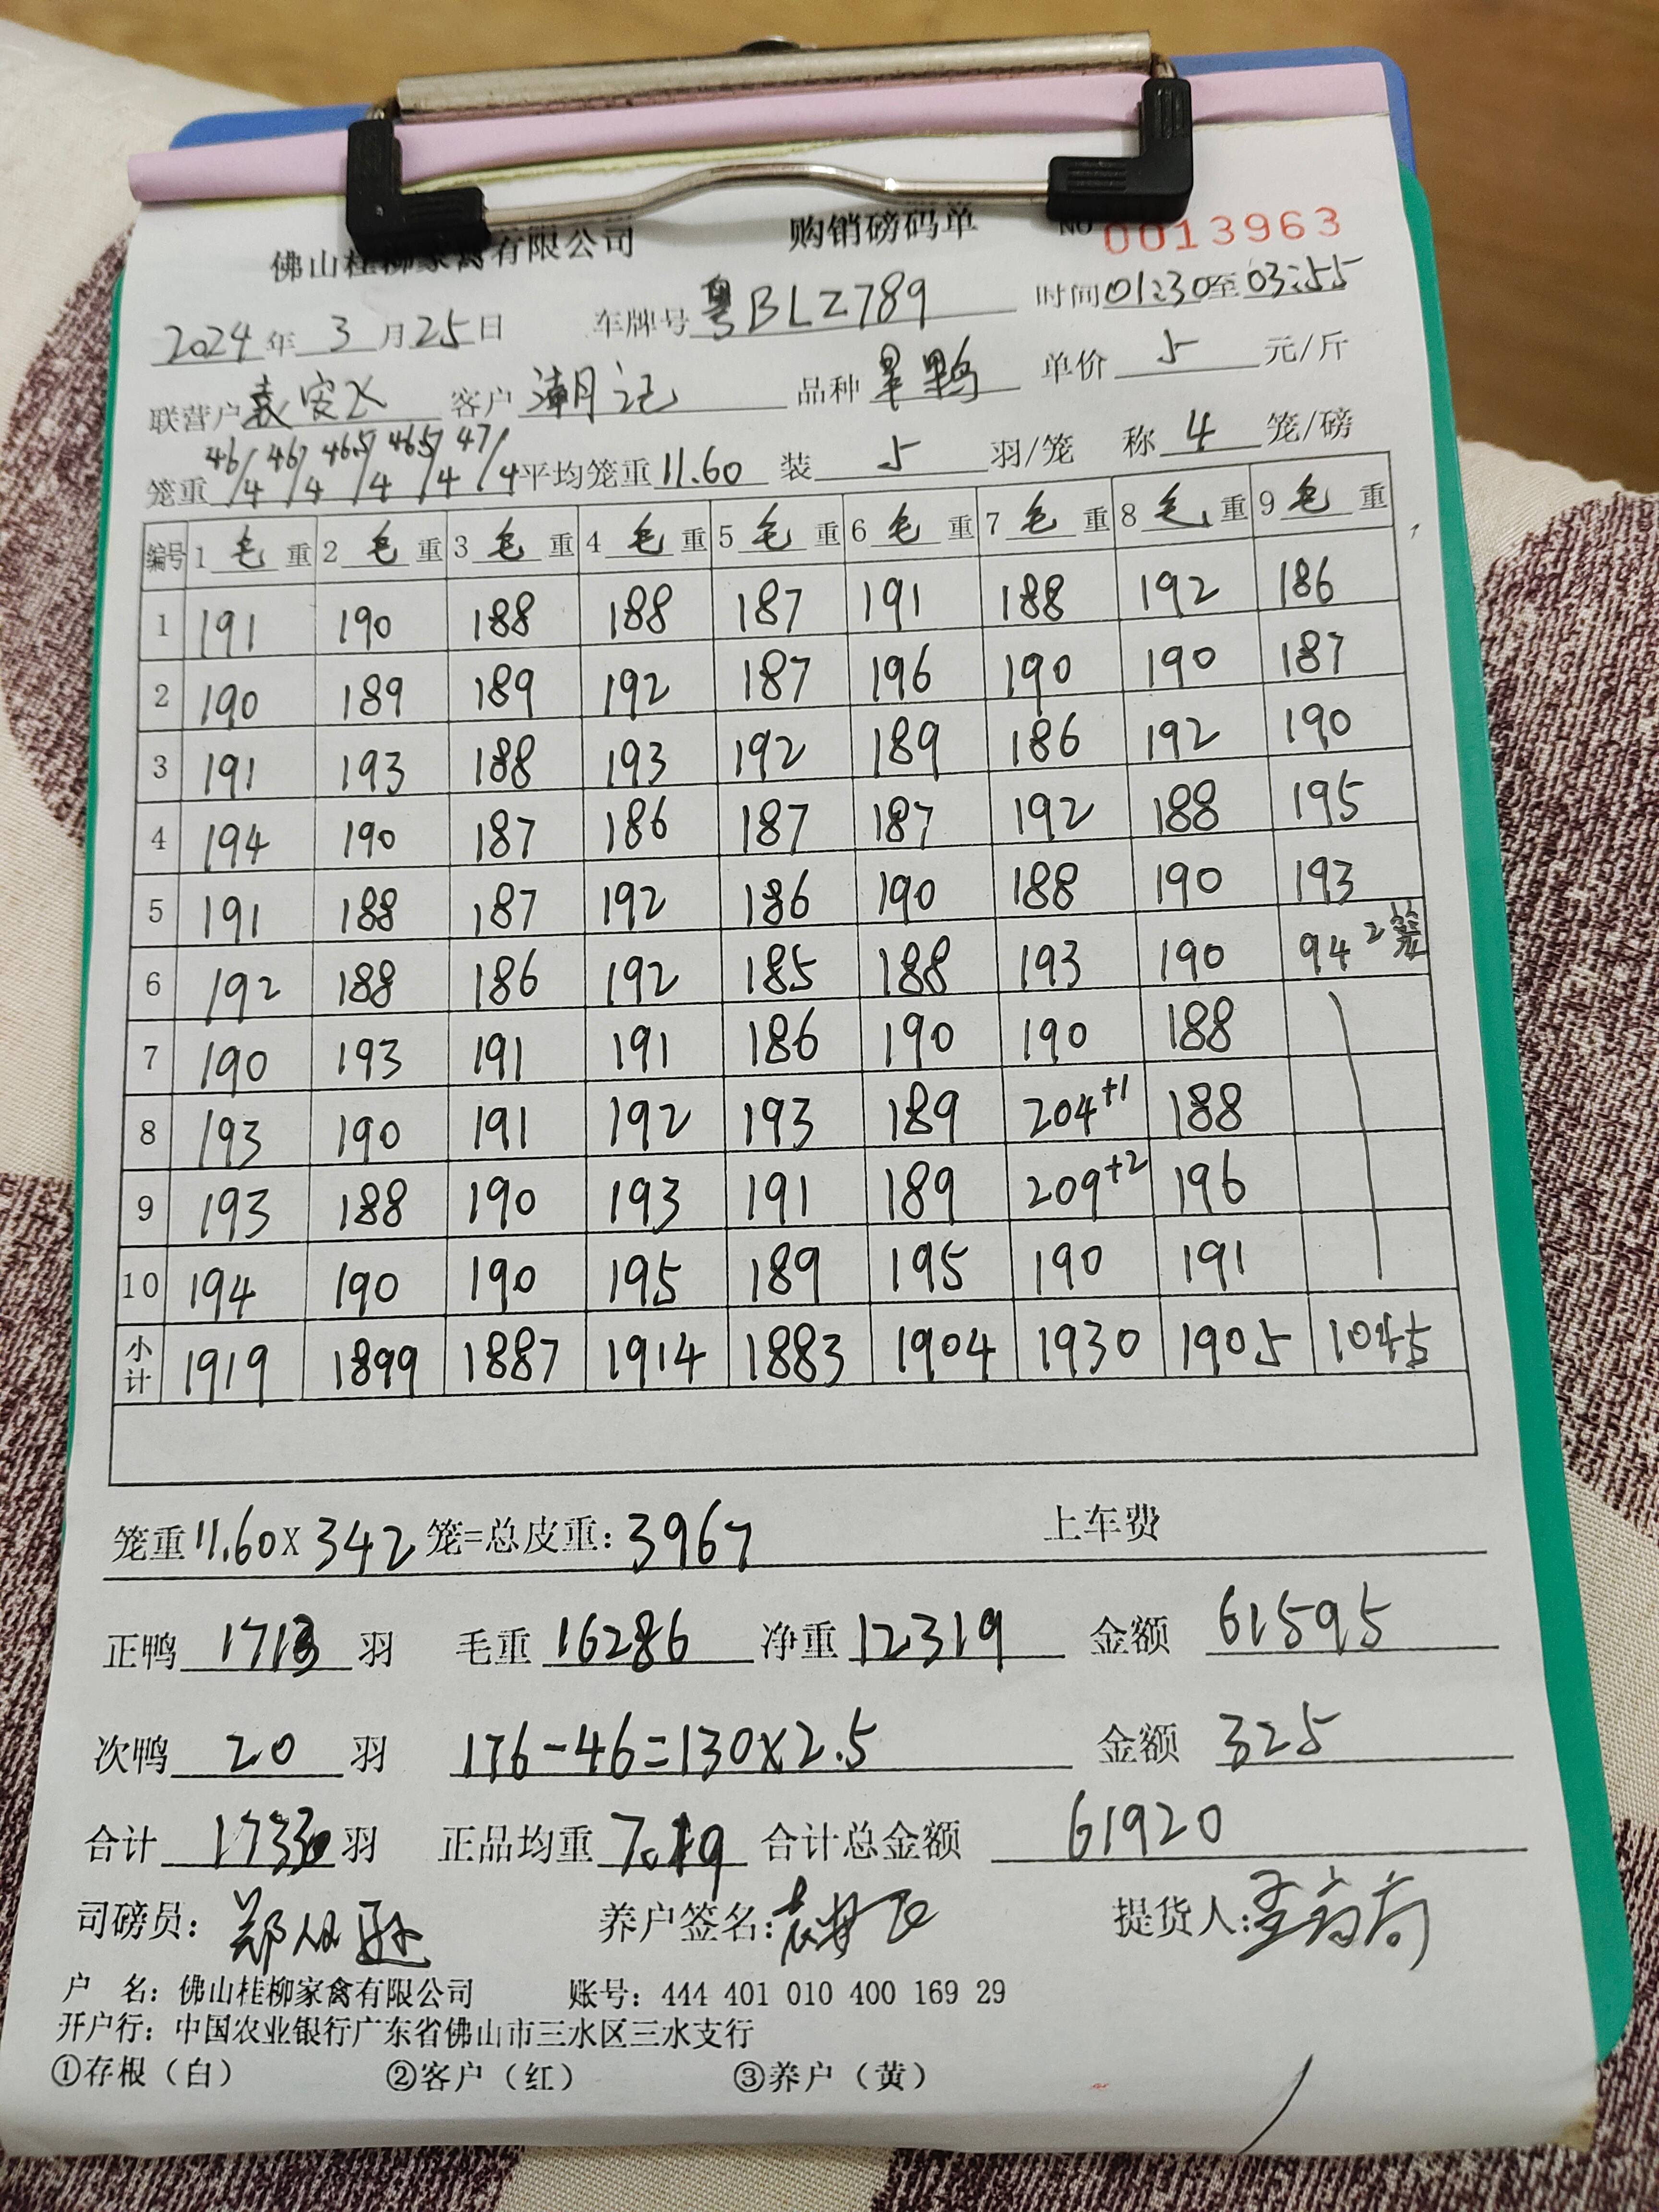 佛山桂柳家禽有限公司 购销磅码单 No 0013963
2024年3月25日 车牌号 粤BLZ789 时间01:30至03:55
联营户 袁安飞 客户 潮记 品种 旱鸭 单价 5 元/斤
笼重 46/4 46/4 46.5/4 46.5/4 47/4 平均笼重 11.60 装 5 羽/笼 称 4 笼/磅
编号 1 毛 重 2 毛 重 3 毛 重 4 毛 重 5 毛 重 6 毛 重 7 毛 重 8 毛 重 9 毛 重
1 191 190 188 188 187 191 188 192 186
2 190 189 189 192 187 196 190 190 187
3 191 193 188 193 192 189 186 192 190
4 194 190 187 186 187 187 192 188 195
5 191 188 187 192 186 190 188 190 193
6 192 188 186 192 185 188 193 190 94 2笼
7 190 193 191 191 186 190 190 188
8 193 190 191 192 193 189 204+1 188
9 193 188 190 193 191 189 209+2 196
10 194 190 190 195 189 195 190 191
小计 1919 1899 1887 1914 1883 1904 1930 1905 1045
笼重 11.60 x 342 笼=总皮重: 3967 上车费
正鸭 1713 羽 毛重 16286 净重 12319 金额 61595
次鸭 20 羽 176-46=130x2.5 金额 325
合计 1733 羽 正品均重 7.19 合计总金额 61920
司磅员: 郑 养户签名: 提货人:
户 名: 佛山桂柳家禽有限公司 账号: 444 401 010 400 169 29
开户行: 中国农业银行广东省佛山市三水区三水支行
①存根（白） ②客户（红） ③养户（黄）